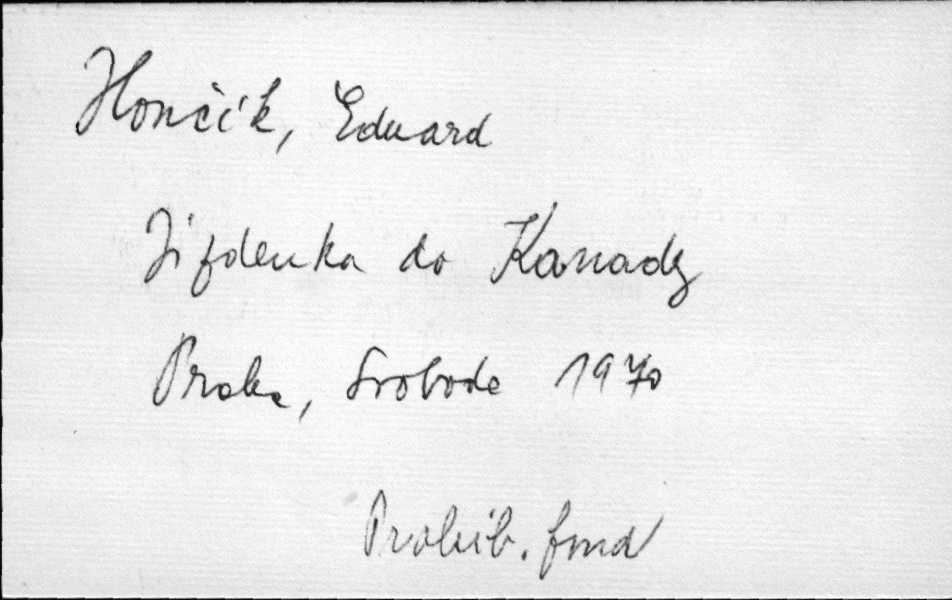 Hončík, Eduard
Jízdenka do Kanady
Praha, Svoboda 1970
Prohib. fond